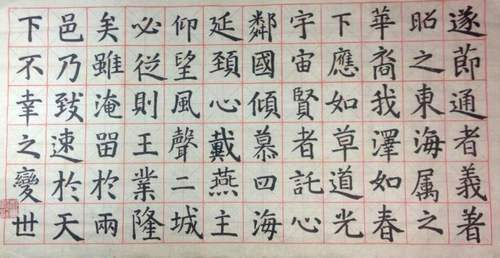 遂節通者義著
昭之東海属之
華裔我澤如春
下應如草道光
宇宙賢者託心
鄰國傾慕四海
延頸心戴燕主
仰望風聲二城
必從則王業隆
矣雖淹留於兩
邑乃致速於天
下不幸之變世